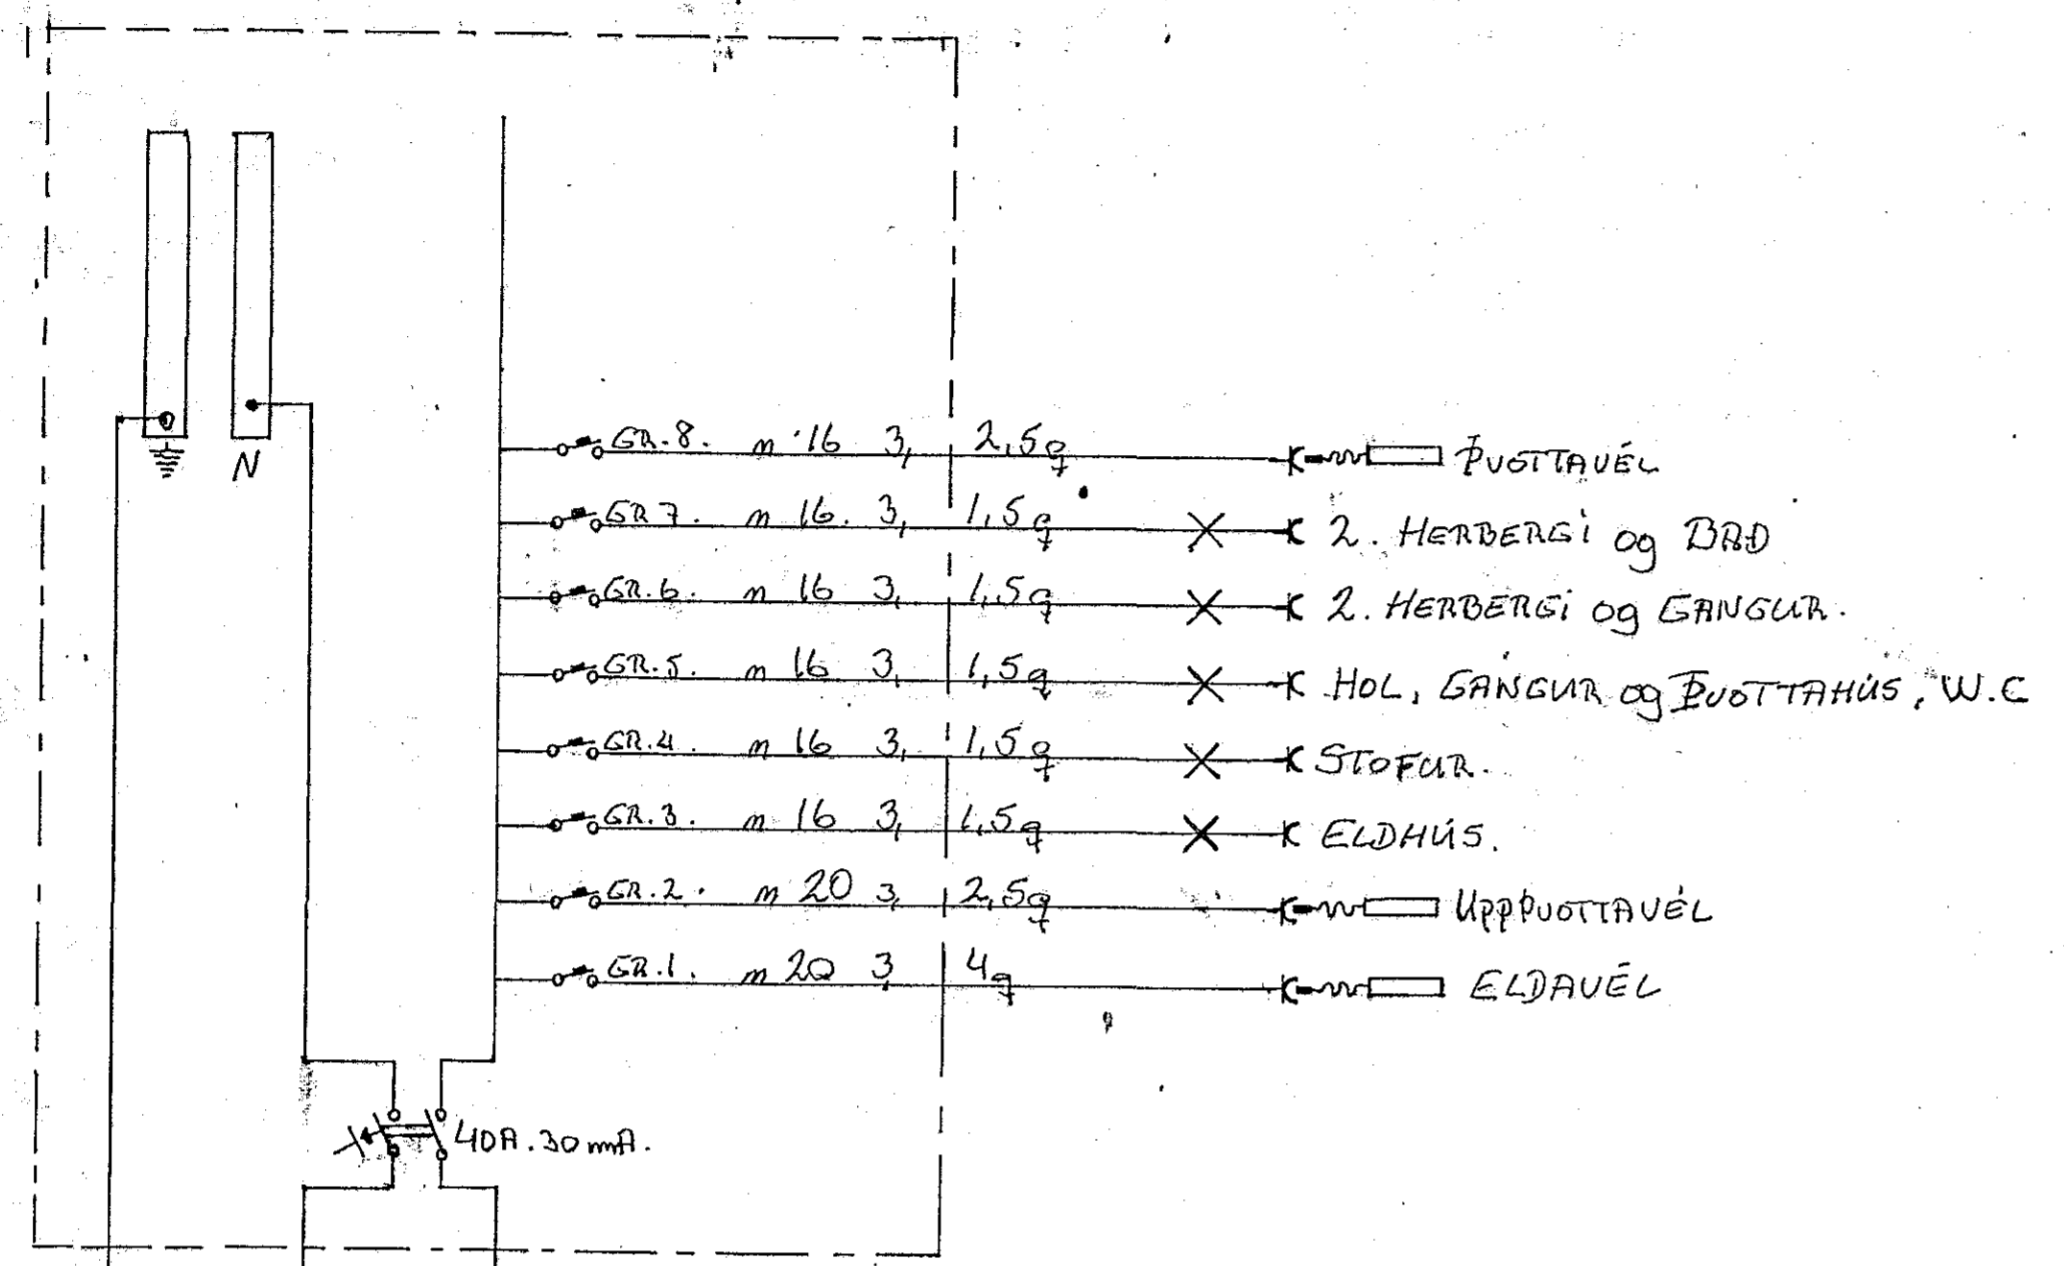 GR.8. m 16 3, 2,5q ÞVOTTAVÉL
GR 7. m 16. 3, 1,5q 2. HERBERGI og BAÐ
GR.6. m 16 3, 1,5q 2. HERBERGI og GANGUR.
GR.5. m 16 3, 1,5q HOL, GANGUR og ÞVOTTAHÚS, W.C
GR.4. m 16 3, 1,5q STOFUR.
GR.3. m 16 3, 1,5q ELDHÚS.
GR.2. m 20 3, 2,5q UPPÞVOTTAVÉL
GR.1. m 20 3, 4q ELDAVÉL
N
40A. 30 mA.